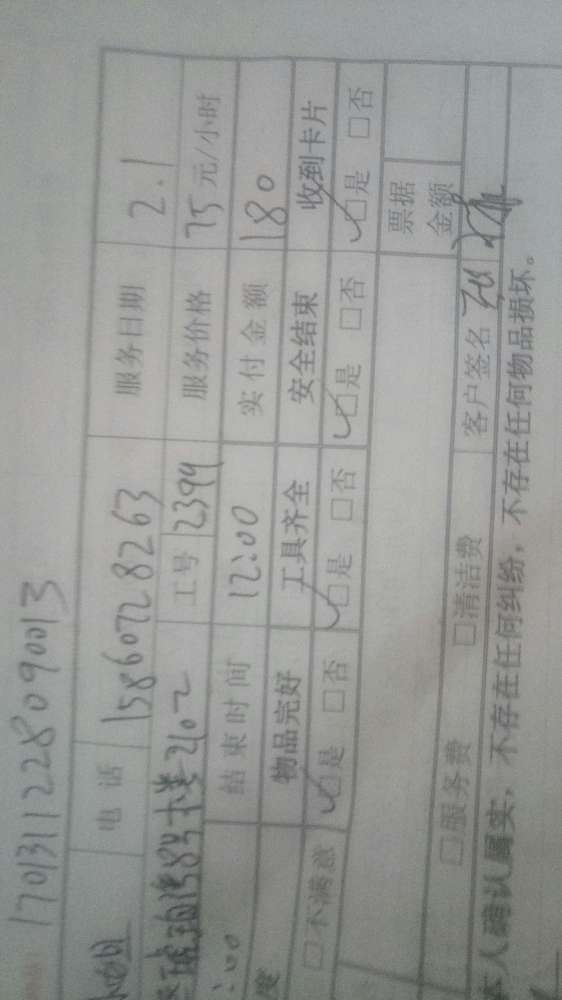 1701311228090013
电话 15860728263 服务日期 2.1
2102 工号 2399 服务价格 75元/小时
:00 结束时间 12:00 实付金额 180
度 物品完好 工具齐全 安全结束 收到卡片
□不满意 ☑是 □否 ☑是 □否 ☑是 □否 ☑是 □否
票据金额
□服务费 □清洁费 客户签名
本人确认属实，不存在任何纠纷，不存在任何物品损坏。